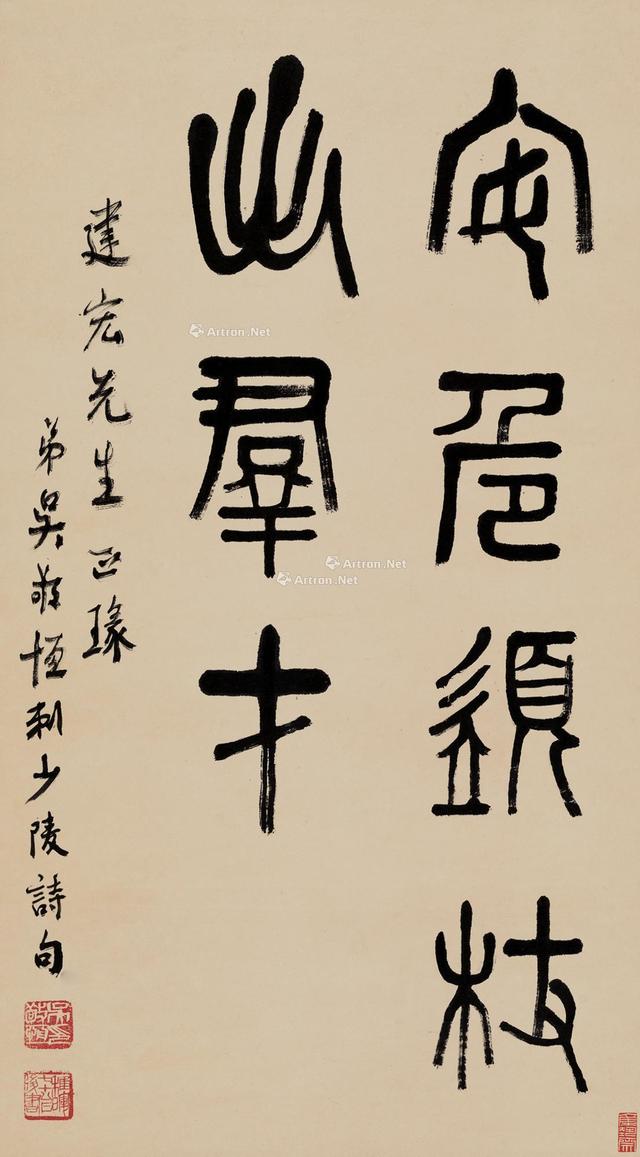 安危須杖出羣才
建宏先生正瑑
弟吳敬恆刺少陵詩句
Artron.Net
Artron.Net
Artron.Net